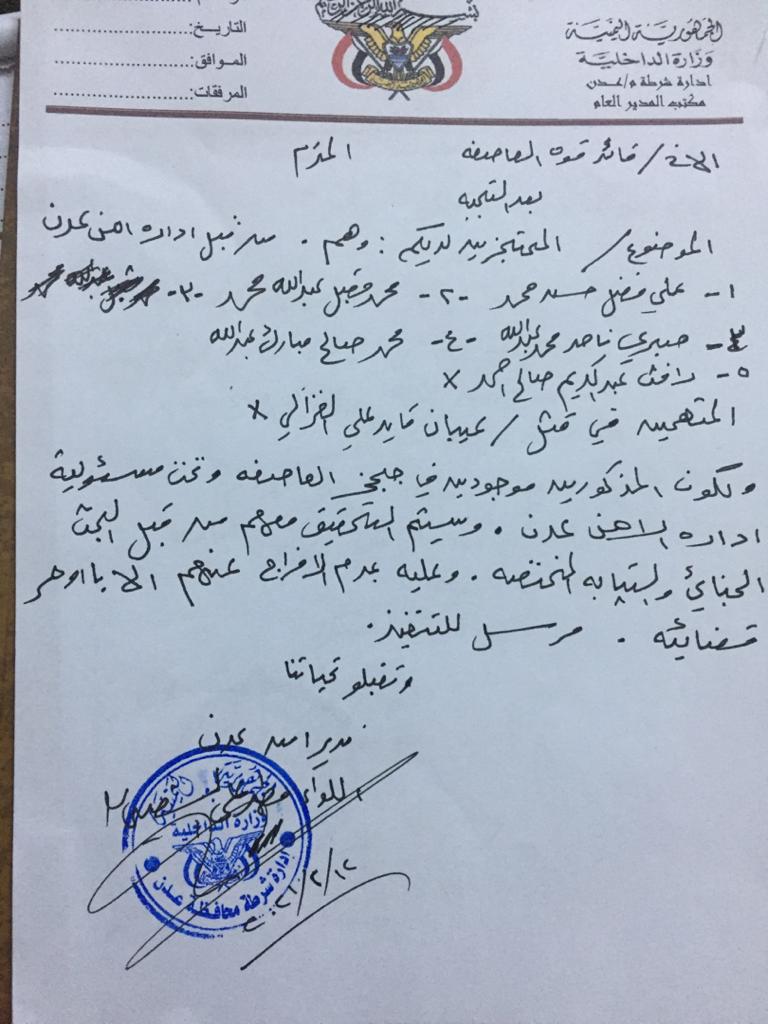 بسم الله الرحمن الرحيم
الجمهورية اليمنية
وزارة الداخلية
ادارة شرطة م/عدن
مكتب المدير العام
التاريخ:
الموافق:
المرفقات:
الاخ / قائد قوة العاصفه المحترم
بعد التحيه
الموضوع / المحتجزين لديكم : وهم . من قبل اداره امن عدن
١- علي فضل حسن محمد -٢- محمد فضل عبدالله محمد -٣-
٣- صبري ناصر محمد عبدالله -٤- محمد صالح مبارك عبدالله
٥- رافت عبدالكريم صالح احمد x
المتهمين في قتل / عيبان قايد علي الغزالي x
ولكون المذكورين موجودين في العاصفه وتحت مسئولية
اداره امن عدن . وسيتم التحقيق معهم من قبل البحث
الجنائي والنيابه المختصه . وعليه بعدم الافراج عنهم الا باامر
قضائيه . مرسل للتنفيذ .
وتقبلو تحياتنا
مدير امن عدن
اللواء
وزارة الداخلية
ادارة شرطة محافظة عدن
٢٠٢١/٢/١٢